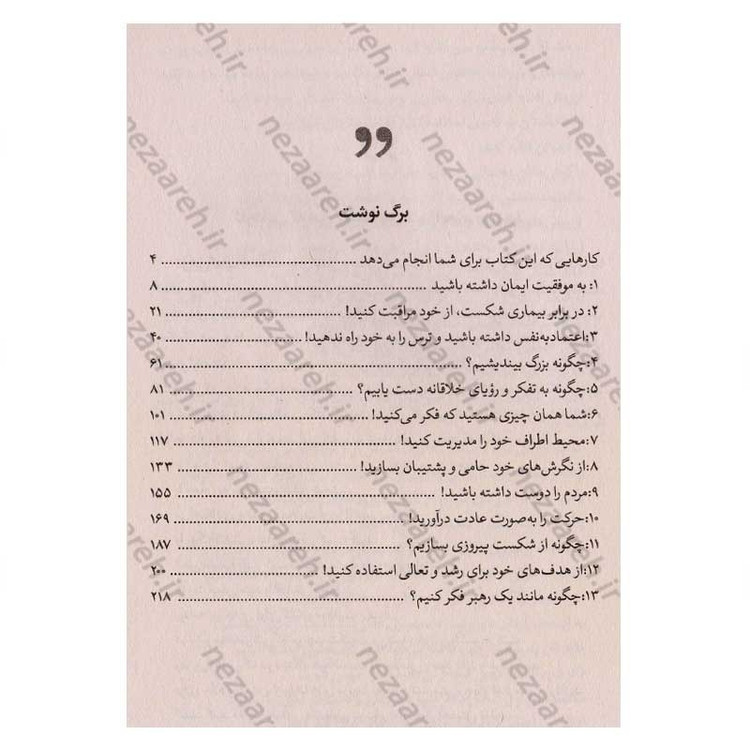 برگ نوشت
کارهایی که این کتاب برای شما انجام می‌دهد ........ ۴
۱: به موفقیت ایمان داشته باشید ........ ۸
۲: در برابر بیماری شکست، از خود مراقبت کنید! ........ ۲۱
۳:اعتمادبه‌نفس داشته باشید و ترس را به خود راه ندهید! ........ ۴۰
۴:چگونه بزرگ بیندیشیم؟ ........ ۶۱
۵:چگونه به تفکر و رؤیای خلاقانه دست یابیم؟ ........ ۸۱
۶:شما همان چیزی هستید که فکر می‌کنید! ........ ۱۰۱
۷:محیط اطراف خود را مدیریت کنید! ........ ۱۱۷
۸:از نگرش‌های خود حامی و پشتیبان بسازید! ........ ۱۳۳
۹:مردم را دوست داشته باشید! ........ ۱۵۵
۱۰:حرکت را به‌صورت عادت درآورید! ........ ۱۶۹
۱۱:چگونه از شکست پیروزی بسازیم؟ ........ ۱۸۷
۱۲:از هدف‌های خود برای رشد و تعالی استفاده کنید! ........ ۲۰۰
۱۳:چگونه مانند یک رهبر فکر کنیم؟ ........ ۲۱۸
nezaareh.ir